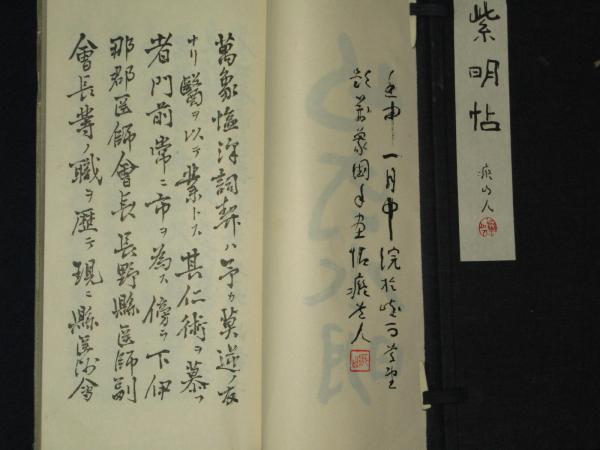 紫明帖
痴山人
壬申一月中浣於
題萬象國手画帖痴山人
萬象塩澤詞契ハ予カ莫逆ノ友
ナリ醫ヲ以テ業トス其仁術ヲ慕フ
者門前常ニ市ヲ為ス傍ラ下伊
那郡医師會長長野縣医師副
會長等ノ職ヲ歴テ現ニ縣医師會